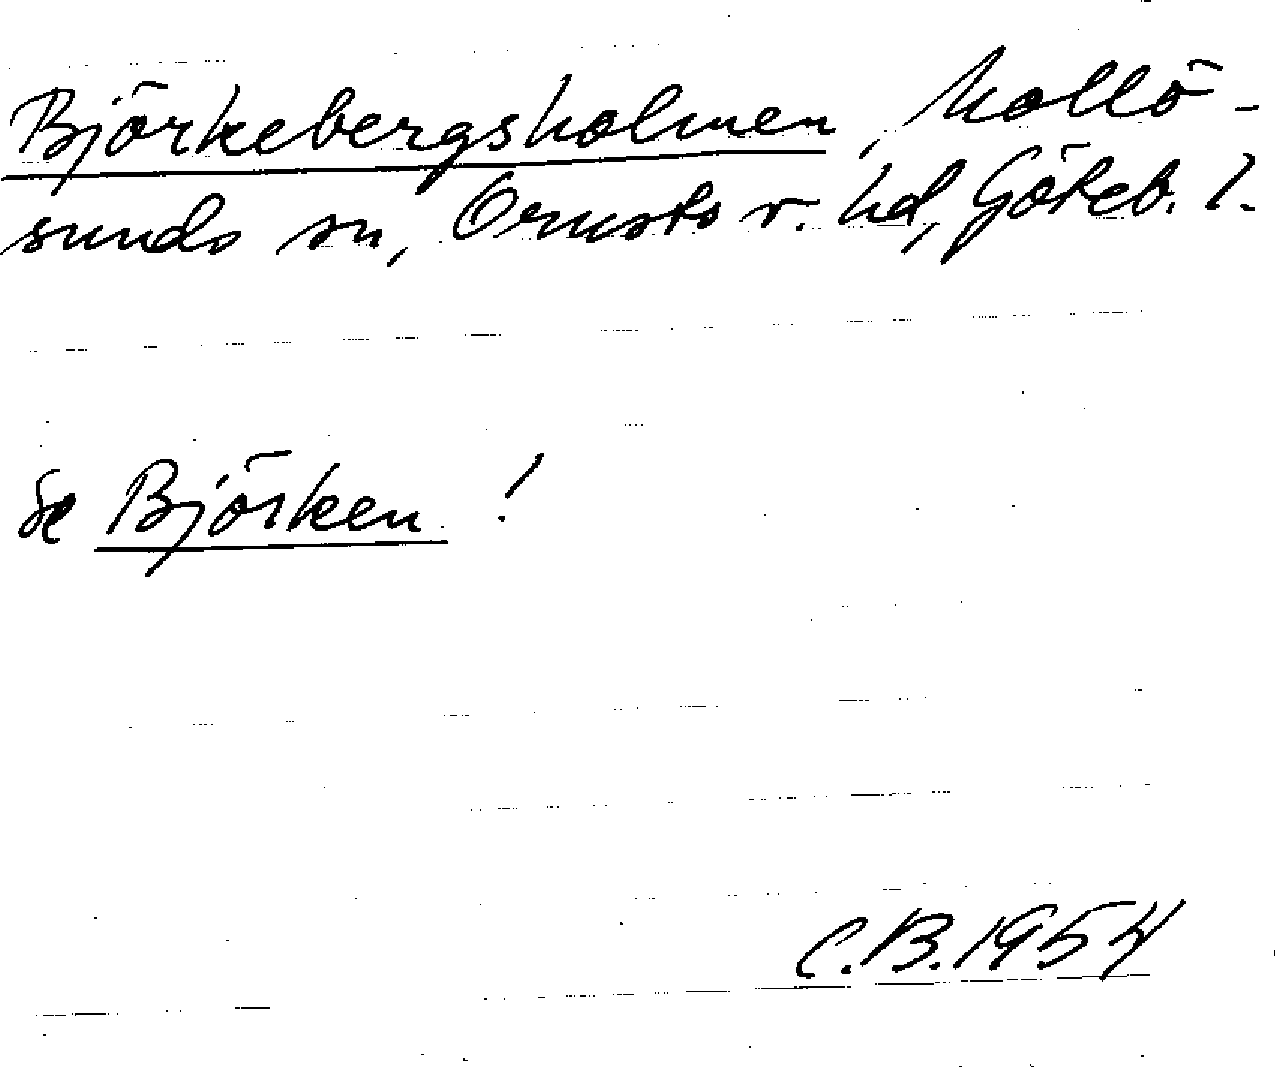 Björkebergsholmen, Mollö-
sunds sn, Orusts v. hd, Göteb. l.
Se Björken !
C.B. 1954